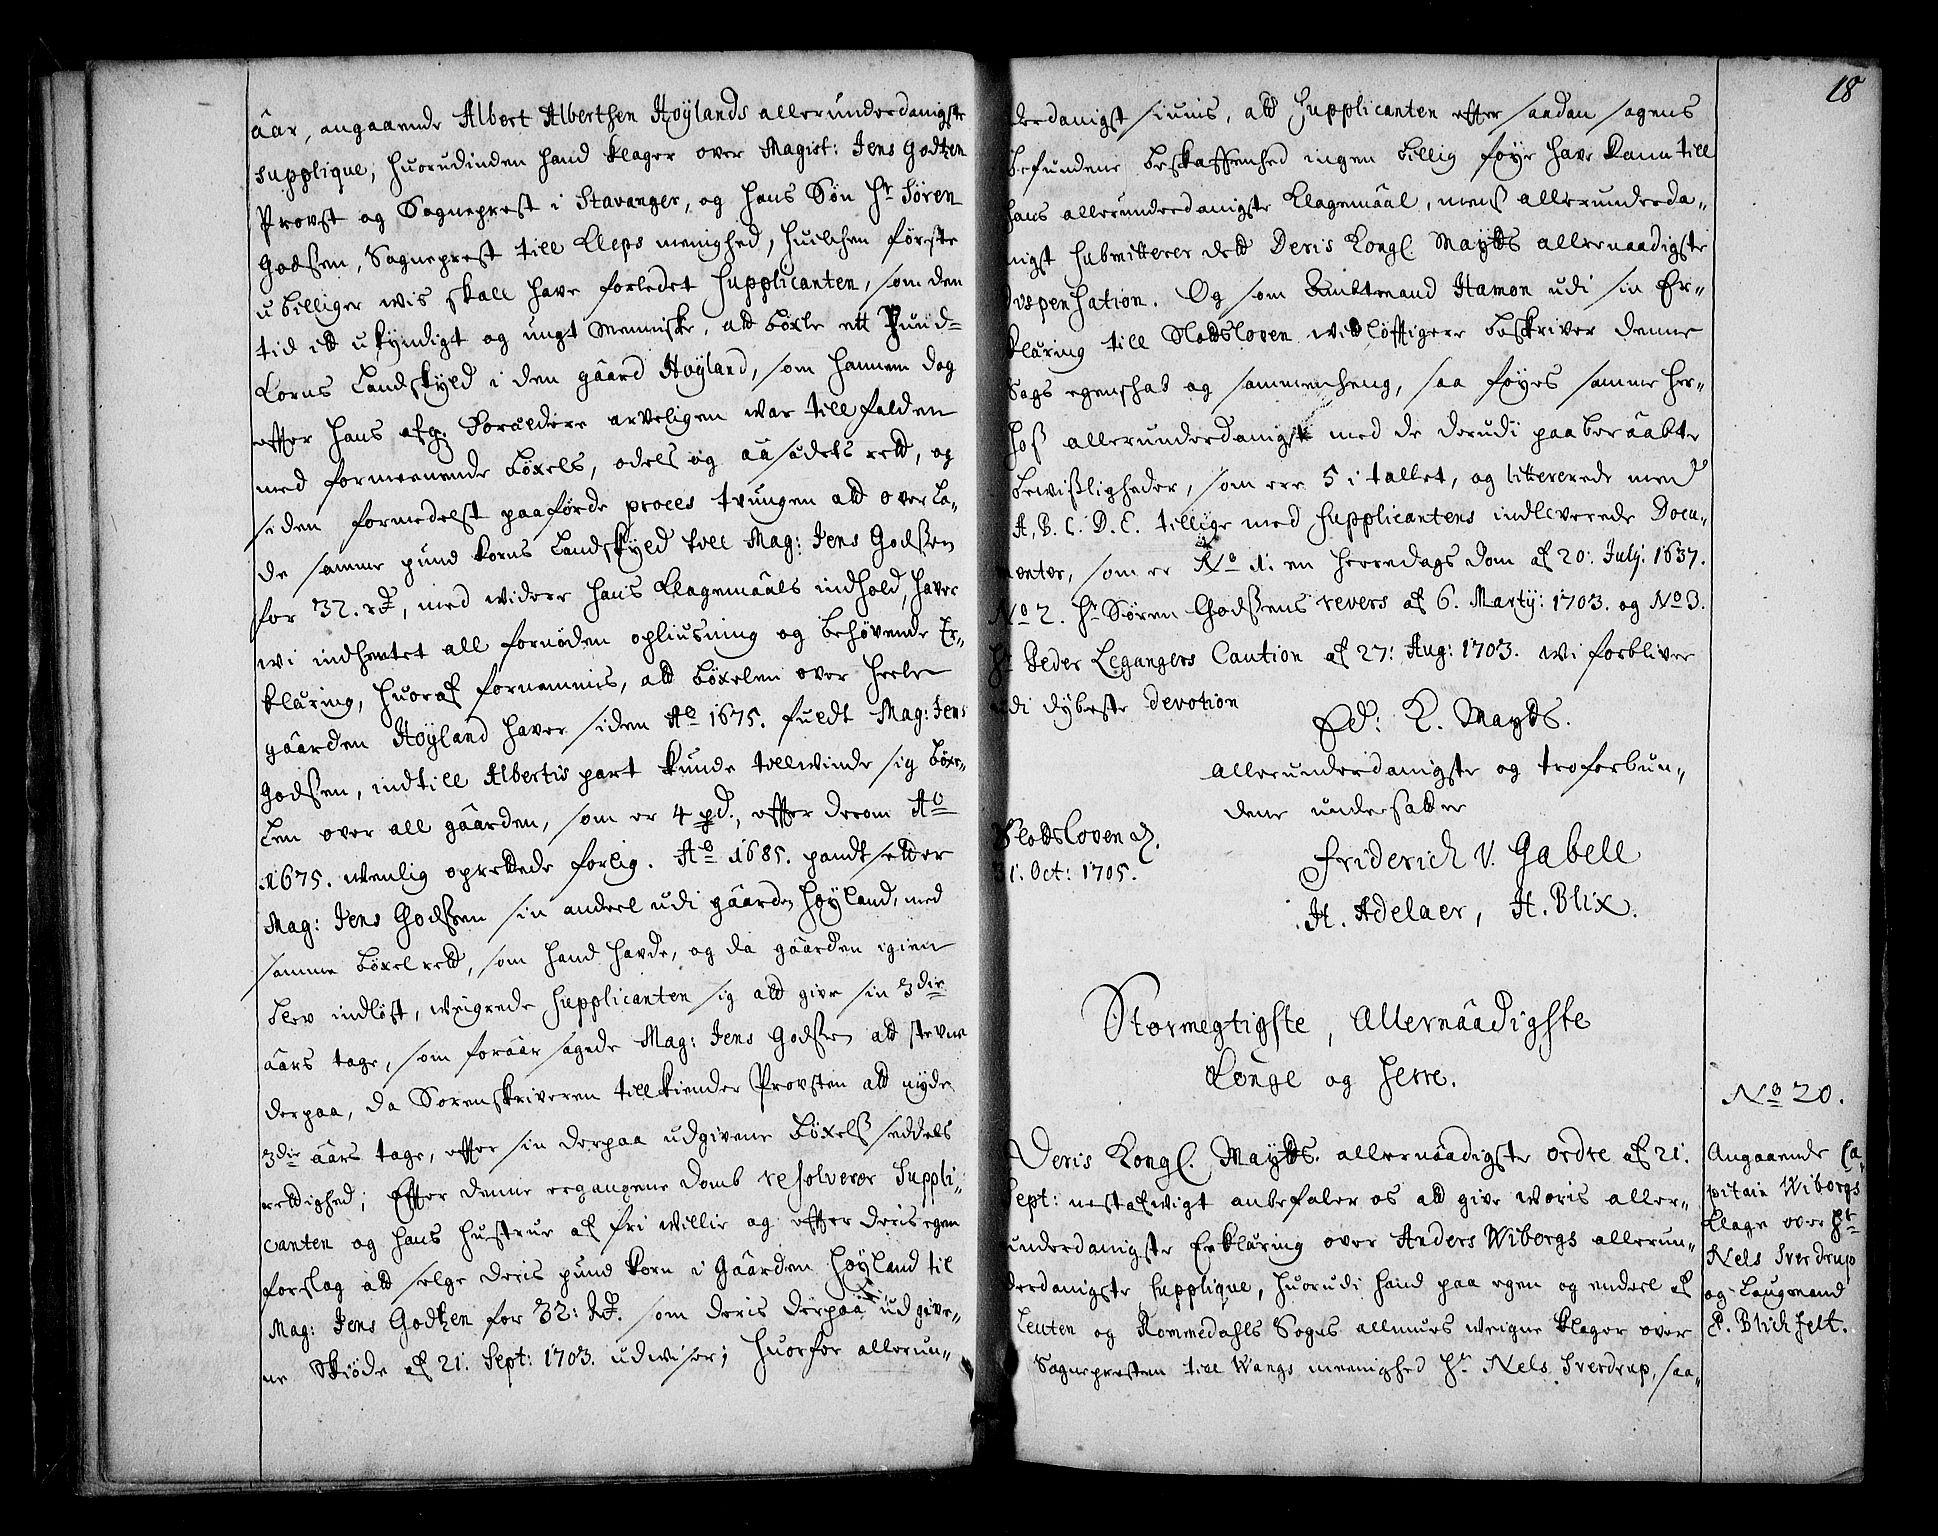 åar, angaaende Albert Alberthsen Høylands allerunderdanigste
Supplique, huorudinden hand klager over Magist: Jens Godtzen
Provst og Sogneprest i Stavanger, og hans Søn Hr Søren
Godtzen, Sogneprest till Kleps menighed, huilchen første
ubilliger wis skall have forledet Supplicanten, som den
tid itt ukyndigt og ungt Menniske, att bøxle ett Pund
Korns Landskyld i den gaard Høyland, som hannem dog
effter hans afg: Forældere arveligen war tillfalden
med formeenende bøxels, odels og aasædets rett, og
siden formedelst paaførde proces tvungen att overla-
de samme pund Korns Landskyld till Mag: Jens Godtzen
for 32. rd, med widere hans Klagemaals indhold, haver
wi indhentet all fornøden opliusning og behøvende Er-
klæring, huoraf fornemmis, att bøxelen over heele
gaarden Høyland haver siden Ao 1675. fuldt Mag: Jens
Godtzen, indtill Albertis part kunde tillwinde sig bøxe-
len over all gaarden, som er 4 pd., effter derom Ao
1675. wenlig oprettede forlig. Ao 1685. pandtsetter
Mag: Jens Godtzen sin andeel udi gaarden Høyland, med
samme bøxel rett, som hand havde, og da gaarden igien
blev indløst, weigrede Supplicanten sig att give sin 3die
aars tage, som foraarsagede Mag: Jens Godtzen att stevne
derpaa, da Sorenskriveren tillkiender Provsten att nyde
3die aars tage, effter sin derpaa udgivene bøxelseddels
rettighed; Effter denne ergangene domb resolverer Suppli-
canten og hans hustrue af fri willie og effter deris egen
forslag att selge deris pund korn i Gaarden Høyland til
Mag: Jens Godtzen for 32: Rd. som deris derpaa udgive-
ne Skiøde af 21. Sept: 1703. udwiser; huorfor allerun-
derdanigst siunis, att Supplicanten effter saadan sagens
befundene beskaffenhed ingen billig føye have kann till
hans allerunderdanigste Klagemaal, mens allerunderda-
nigst submitterer dett Deris Kongl. Maytts allernaadigste
dispensation. Og som Ambtmand Hamon udi sin Er-
klæring till Slottsloven widtløfftigere beskriver denne
Sags egenskab og sammenheng, saa føyes samme her-
hos allerunderdanigst med de derudi paaberaabte
bewisligheder, som ere 5 i tallet, og littererede med
A, B. C. D. E. tillige med Supplicantens indleverede Docu-
menter, som er No 1. en Herredags dom af 20: July: 1637.
No 2. Hr Søren Godtzens revers af 6. Marty: 1703. og No 3.
Hr Peder Legangers Caution af 27: Aug: 1703. wi forbliver
udi dybeste devotion
Ed: K. Mayts.
allerunderdanigste og troforbun-
dene undersatter
Slottsloven d.
31. Oct: 1705.
Friderich V. Gabell
H. Adelaer, H. Blix.
Stormegtigste, Allernaadigste
Konge og Herre.
No 20.
Deris Kongl. Maytts. allernaadigste ordre af 21.
Sept: nestafwigt anbefaler os att give woris aller-
underdanigste Erklæring over Anders Wiborgs allerun-
derdanigste Supplique, huorudi hand paa egen og endeel af
Leuten og Rommedahls Sogns allmues weigne klager over
Sognepresten till Wangs meenighed Hr. Nels Sverdrup, saa-
Angaaende Ca-
pitain Wiborgs
Klage over Hr
Nels Sverdrup
og Laugmand
P. Blichfelt.
18